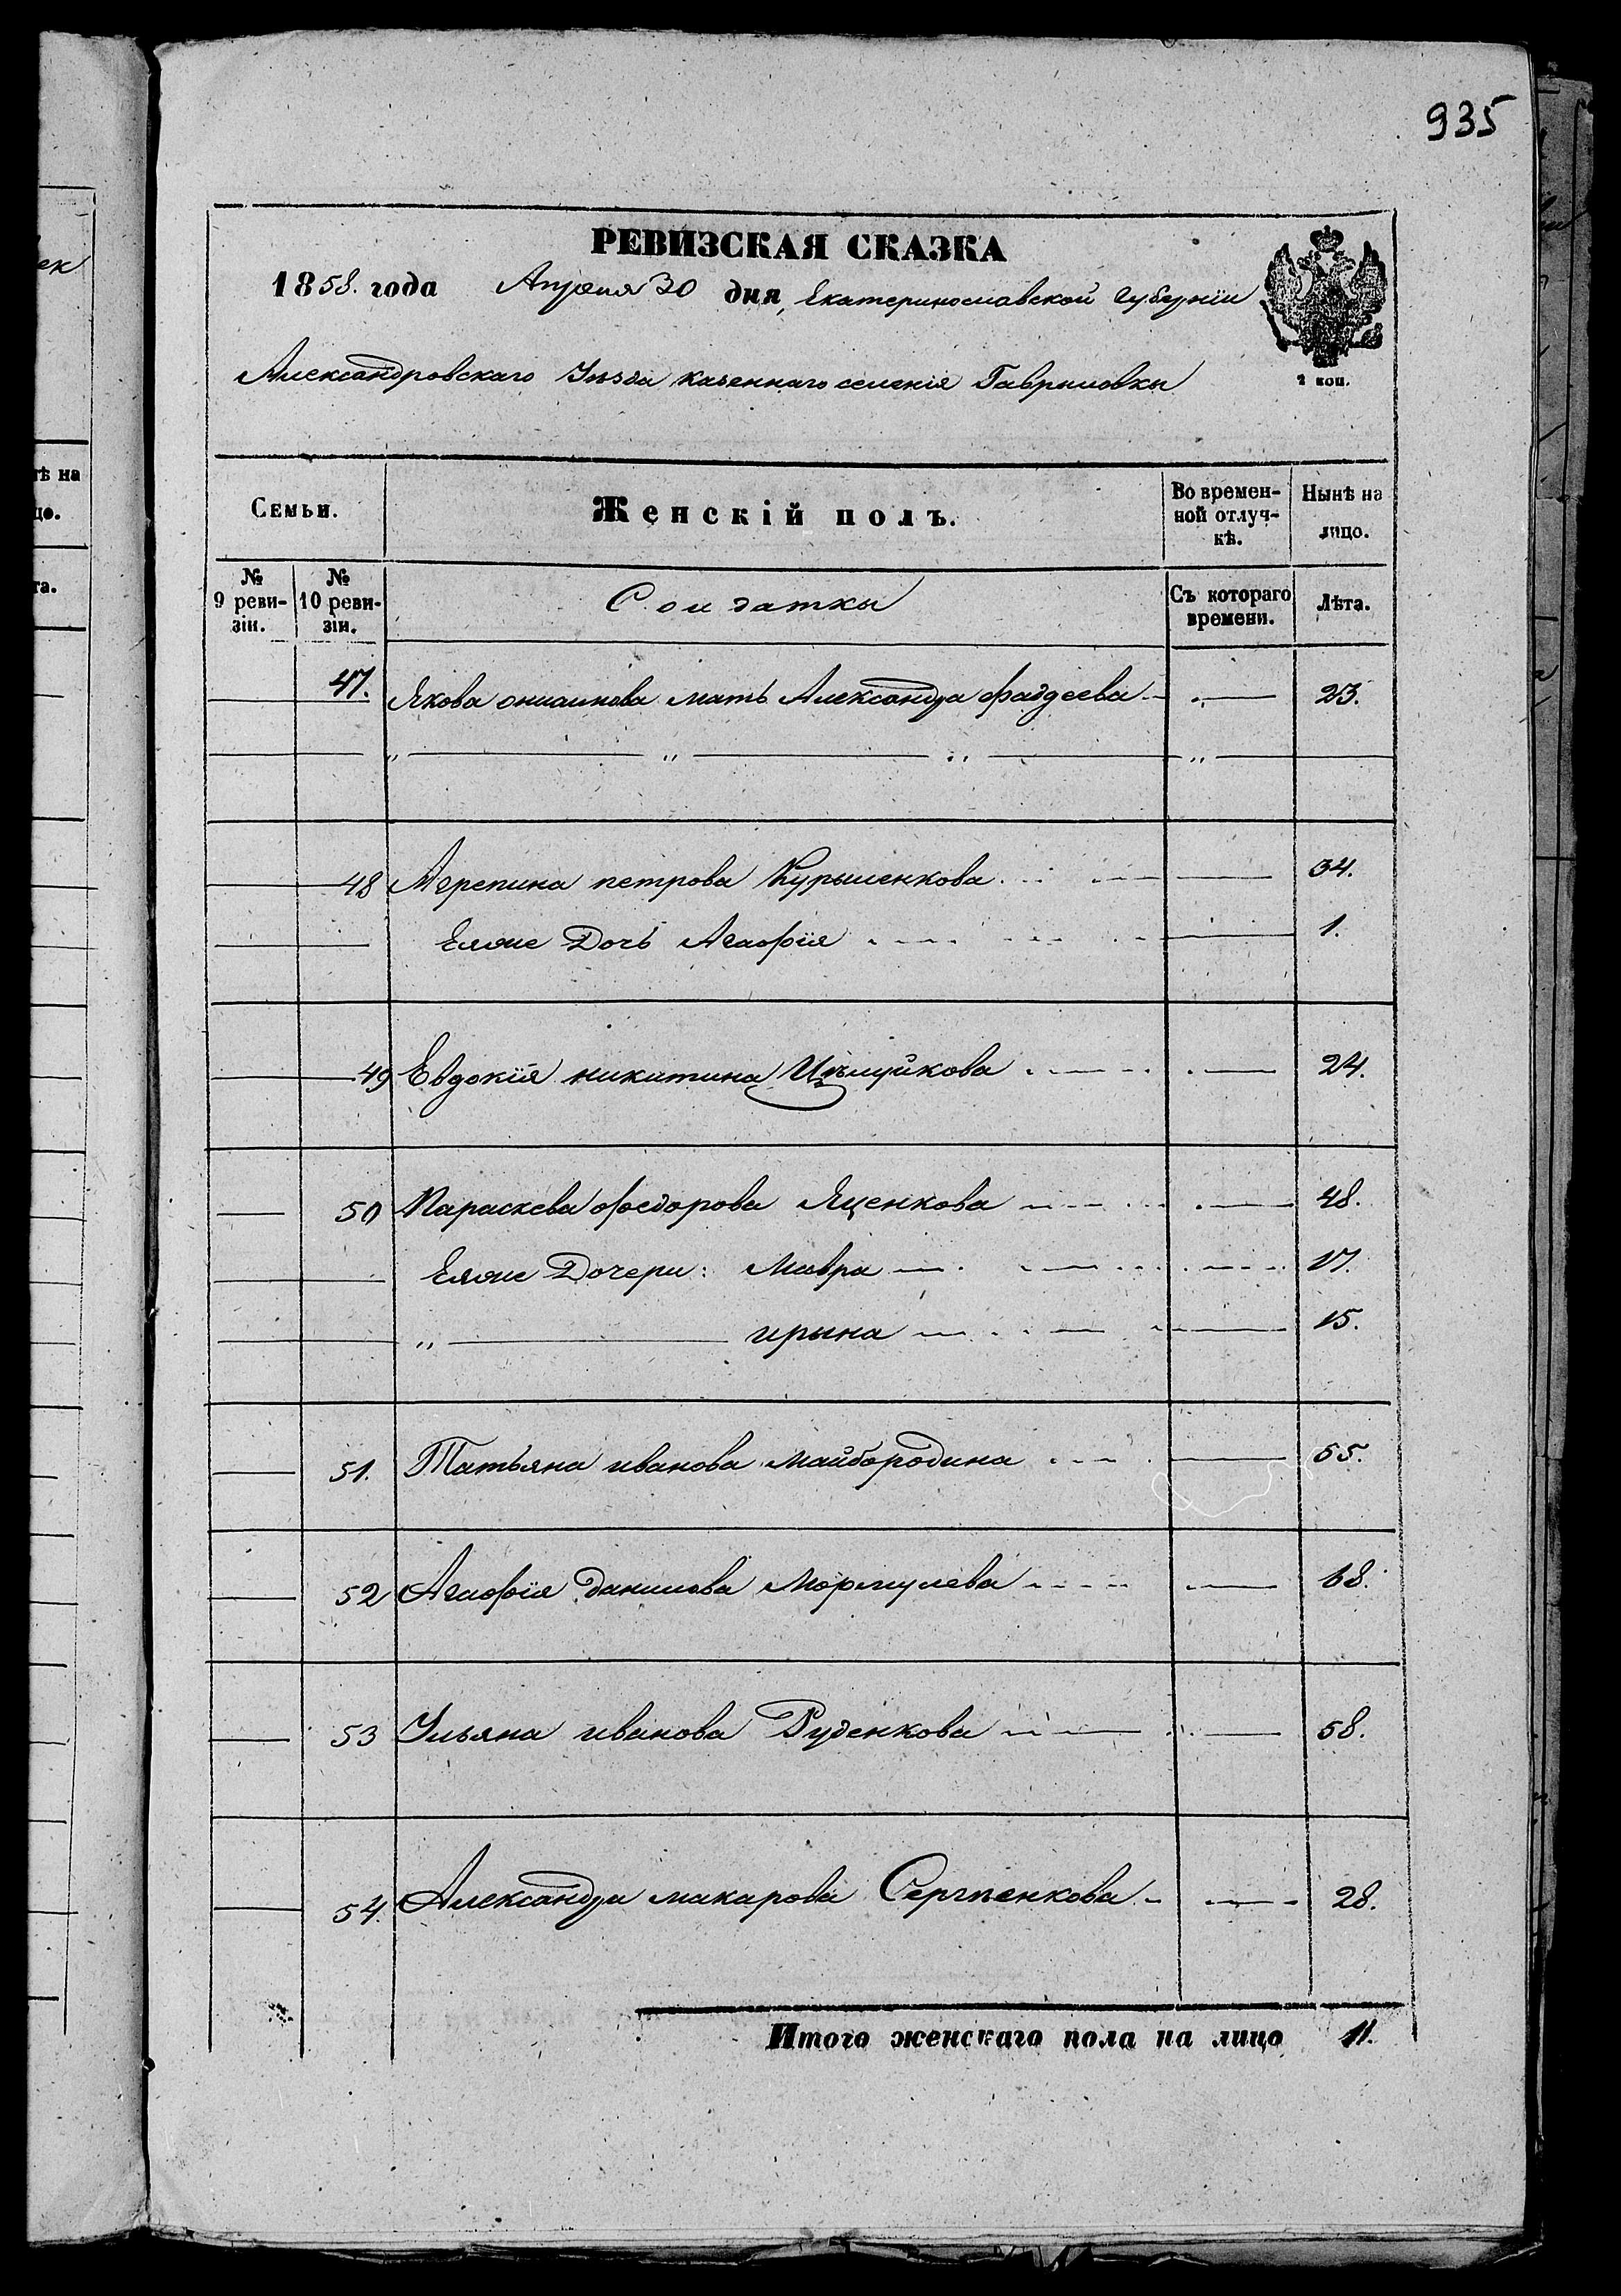 935
РЕВИЗСКАЯ СКАЗКА
1858. года Апреля 30 дня, Екатеринославской Губернiи
Александровскаго Уѣзда казеннаго селенiя Гавриловки
2 коп.
Семьи.
Женскiй полъ.
Во времен-
ной отлуч-
кѣ.
Нынѣ на
лицо.
№
9 реви-
зiи.
№
10 реви-
зiи.
Солдатки
Съ котораго
времени.
Лѣта.
47. Якова мать Александра фаддеева 23.
48 Агрепина петрова Курыленкова 34.
Еяже Дочь Агафiя 1.
49 Евдокiя никитина Цѣлуйкова 24.
50 Параскева федорова Яценкова 48.
Еяже Дочери: Мавра 17.
" ирына 15.
51. Татьяна иванова майбородина 55.
52 Агафiя данилова Мормулева 68.
53 Ульяна иванова Руденкова 58.
54. Александра макарова Сергѣенкова 28.
Итого женскаго пола на лицо 11.
ек
тѣ на
цо.
та.